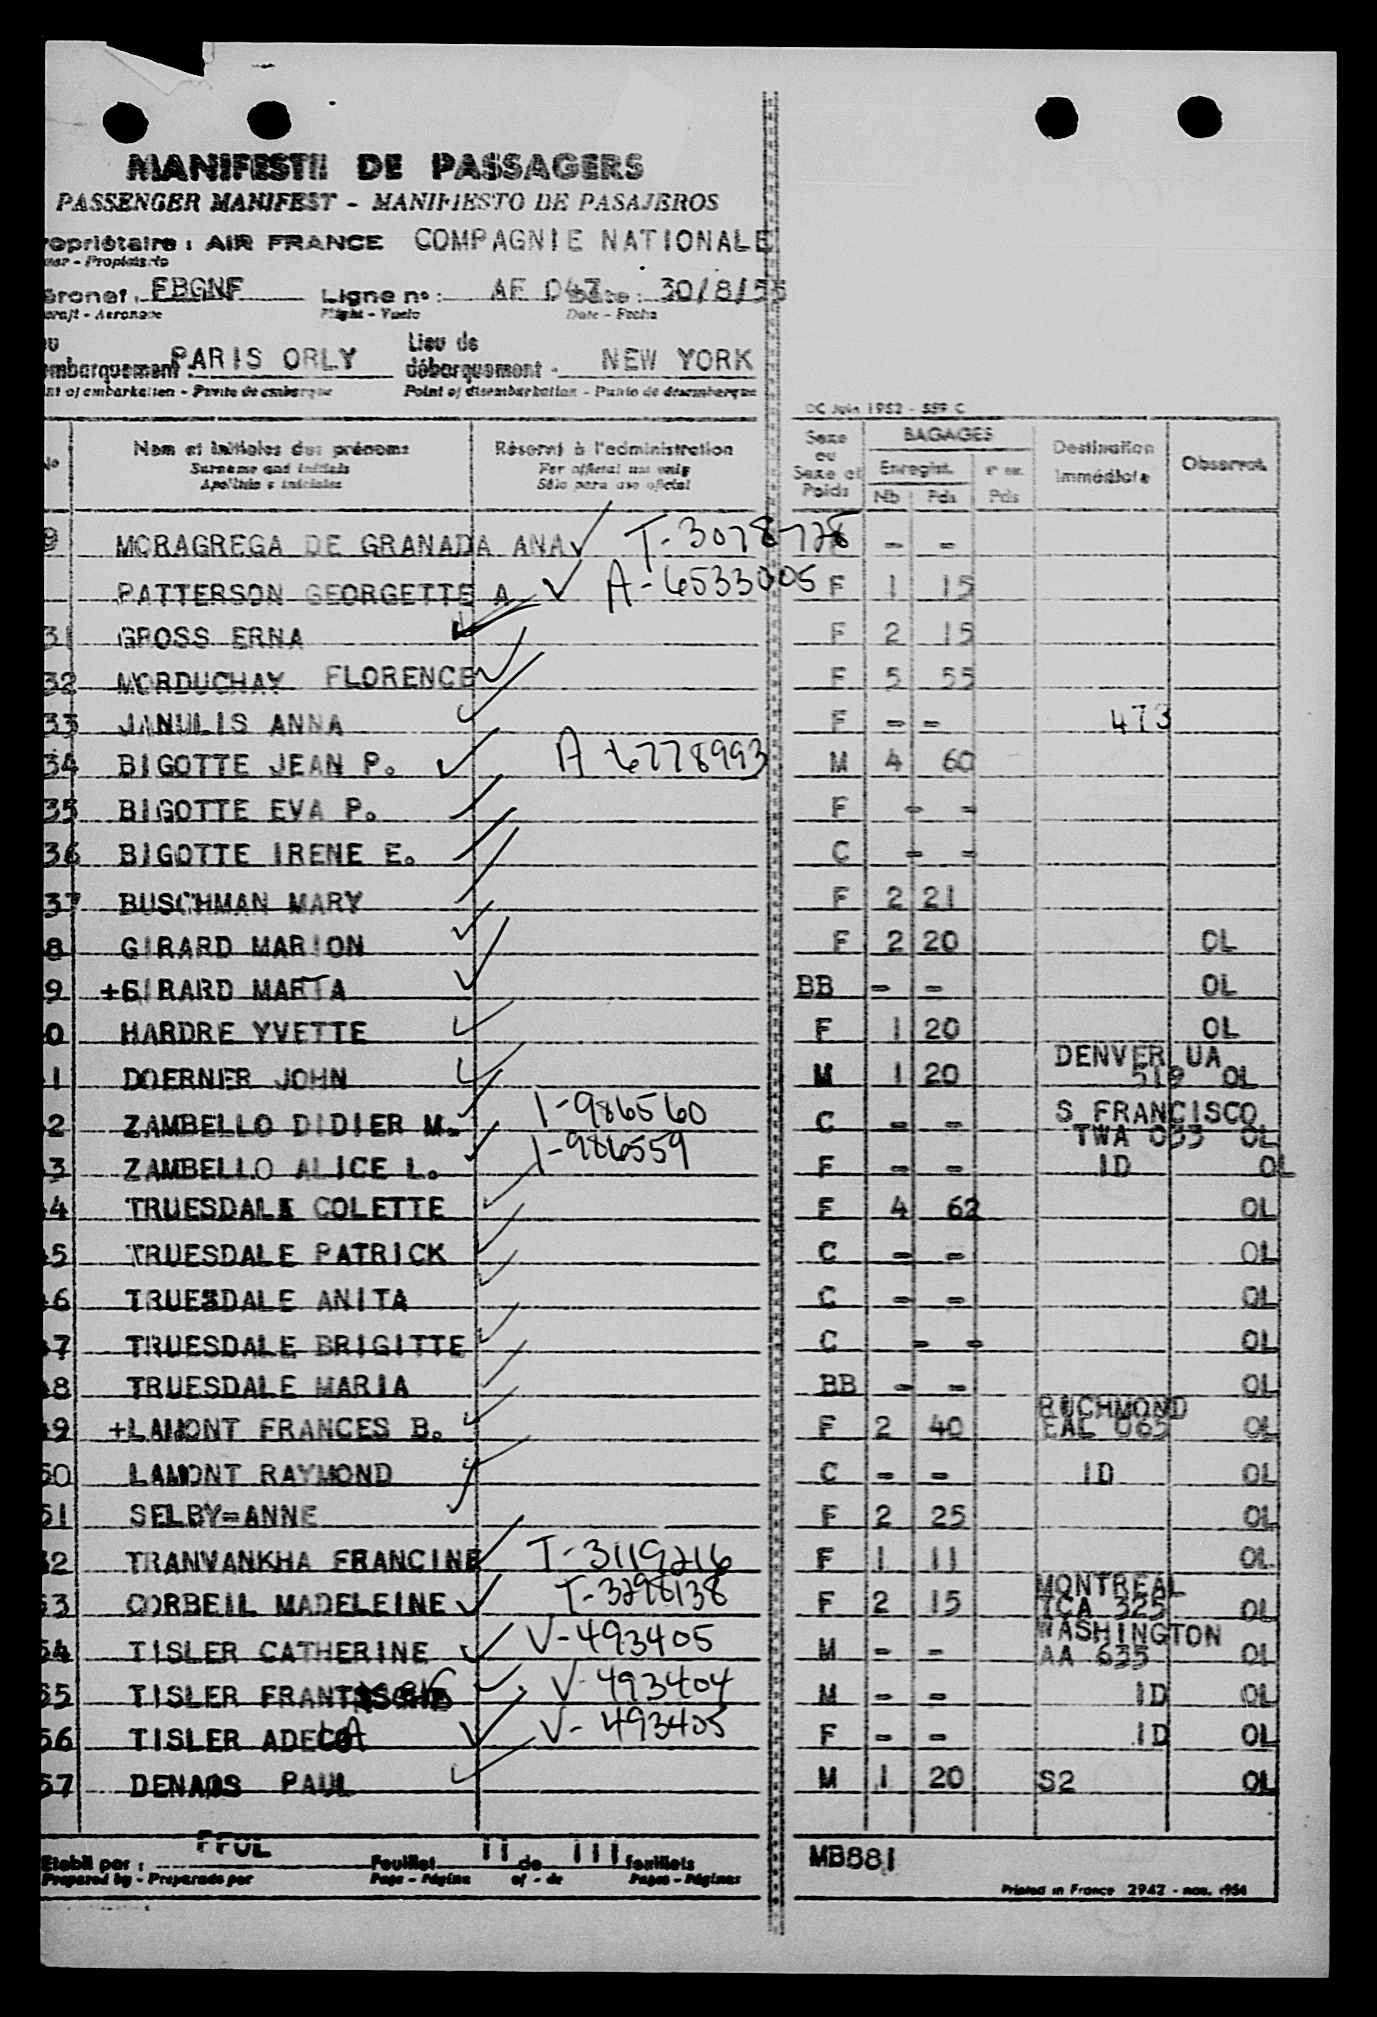 MANIFESTE DE PASSAGERS
PASSENGER MANIFEST - MANIFIESTO DE PASAJEROS
ropriétaire : AIR FRANCE COMPAGNIE NATIONALE
ner - Propietario
éronef : FBGNF Ligne n° : AF 047 Date : 30/8/55
craft - Aeronave Flight - Vuelo Date - Fecha
mbarquement PARIS ORLY Lieu de débarquement - NEW YORK
nt of embarkation - Punto de embarque Point of disembarkation - Punto de desembarque
OC Juin 1952 - 559 C
No Nom et initiales des prénoms Réservé à l'administration Sexe ou Sexe et Poids BAGAGES Destination immédiate Observat.
Surname and initials For official use only Enregist.
Apellido e iniciales Sólo para uso oficial Nb Pds Pds
9 MORAGREGA DE GRANADA ANA T-3078778 - -
PATTERSON GEORGETTE A A-6533005 F 1 15
31 GROSS ERNA F 2 15
32 MORDUCHAY FLORENCE F 5 55
33 JANULIS ANNA F - - 473
34 BIGOTTE JEAN P. A-6778993 M 4 60
35 BIGOTTE EVA P. F - -
36 BIGOTTE IRENE E. C - -
37 BUSCHMAN MARY F 2 21
8 GIRARD MARION F 2 20 OL
9 +GIRARD MARTA BB - - OL
0 HARDRE YVETTE F 1 20 OL
1 DOERNER JOHN M 1 20 DENVER UA 519 OL
2 ZAMBELLO DIDIER M. 1-986560 C - - S FRANCISCO TWA 033 OL
3 ZAMBELLO ALICE L. 1-986559 F - - ID OL
4 TRUESDALE COLETTE F 4 62 OL
5 TRUESDALE PATRICK C - - OL
6 TRUESDALE ANITA C - - OL
7 TRUESDALE BRIGITTE C - - OL
8 TRUESDALE MARIA BB - - OL
49 +LAMONT FRANCES B. F 2 40 RUCHMOND EAL 065 OL
50 LAMONT RAYMOND C - - ID OL
51 SELBY=ANNE F 2 25 OL
52 TRANVANKHA FRANCINE T-3119216 F 1 11 OL
53 CORBEIL MADELEINE T-3298138 F 2 15 MONTREAL TCA 325 OL
54 TISLER CATHERINE V-493405 M - - WASHINGTON AA 635 OL
55 TISLER V-493404 M - - ID OL
56 TISLER ADELA V-493405 F - - ID OL
57 DENAOS PAUL M 1 20 S2 OL
Etabli par : FFOL Feuillet 11 de 111 feuillets MB881
Prepared by - Preparado por Page - Página of - de Pages - Páginas
Printed in France 2942 - nov. 1954